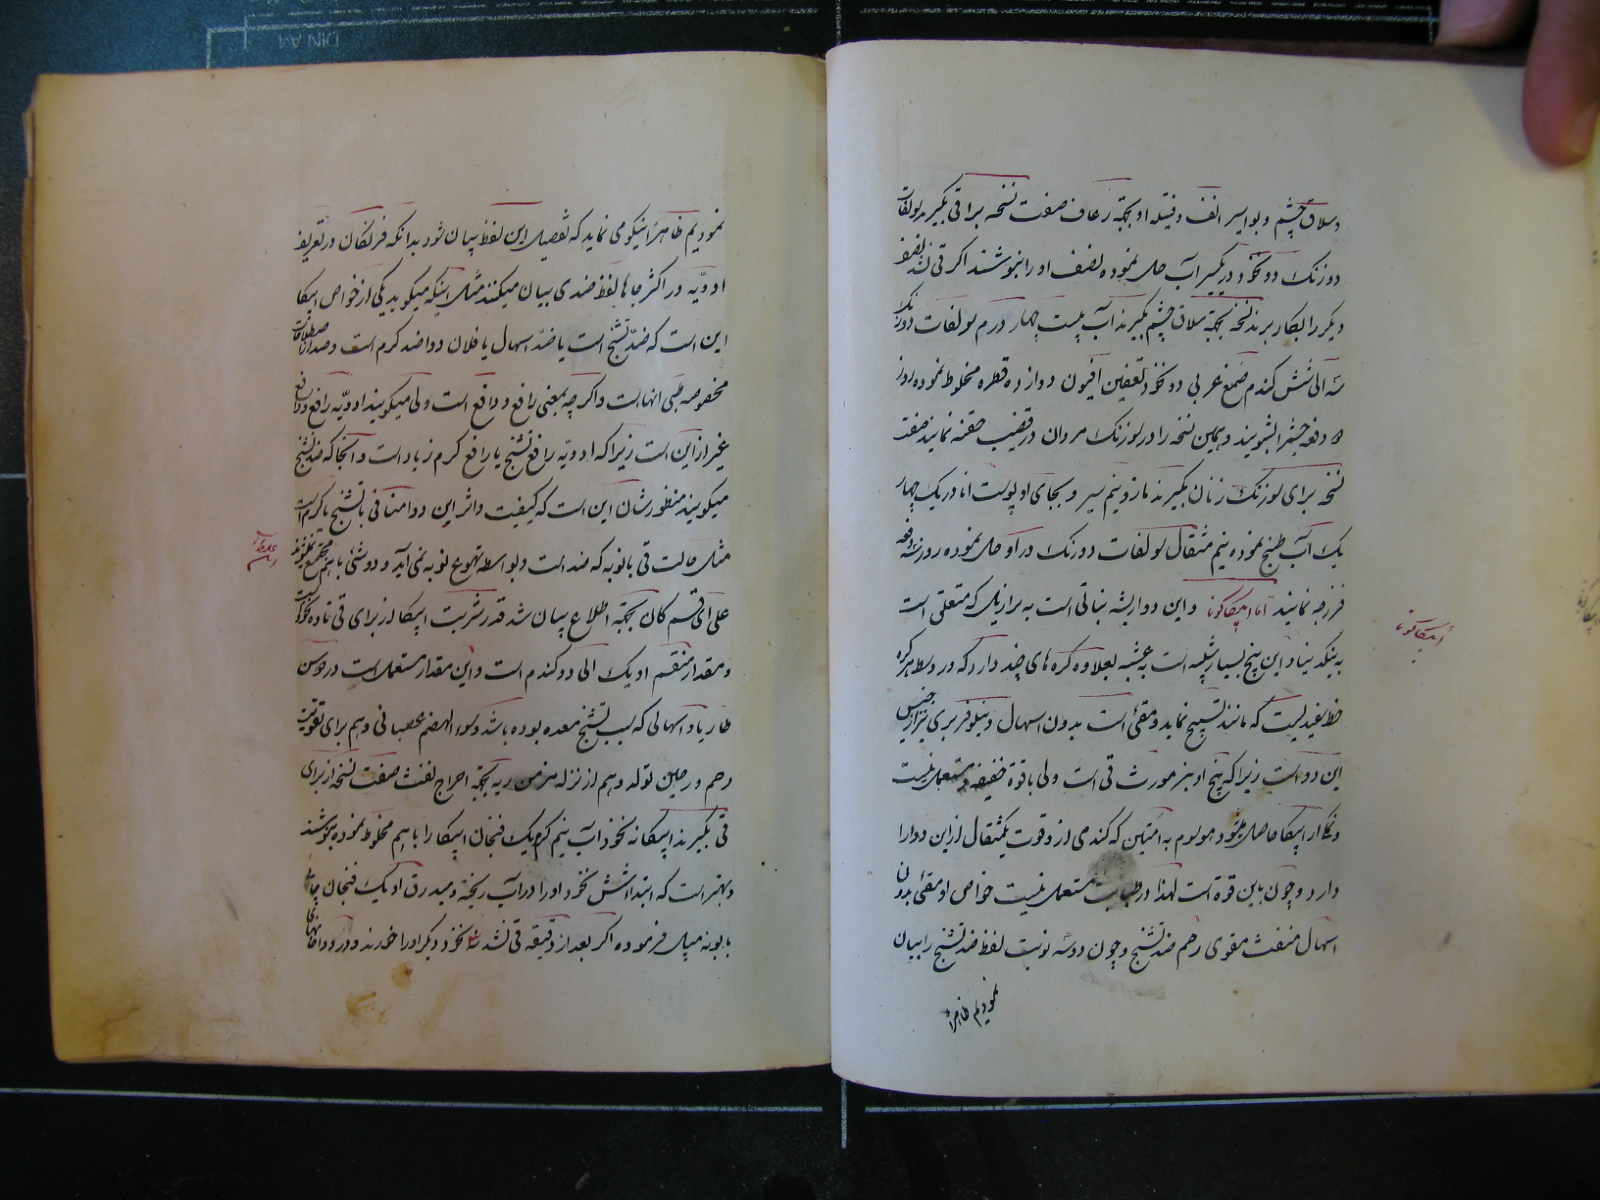 وسلاق چشم و بواسیر انف و فتیله او بجهة رعاف صفت نسخه برای قی بگیرند سولفات
دوزنک دو نخود در یکسیر آب حل نموده نصف او را بنوشند اگر قی نشد نصف
دیگر را بکار برند نسخه بجهة سلاق چشم بگیرند آب بیست چهار درم سولفات دوزنک
سه الی شش گندم صمغ عربی دو نخود تعفین افیون دوازده قطره مخلوط نموده روز
ده دفعه چشم را بشویند و همین نسخه را در سوزنک مردان در قضیب حقنه نمایند صفت
نسخه برای سوزنک زنان بگیرند مازو نیم سیر و بجای او پوست انار در یک چهار
یک آب طبخ نموده نیم مثقال سولفات دوزنک در او حل نموده روز سه دفعه
فرزجه نمایند اما ایپکاکوانا و این دوا ریشه نباتی است به برازیل که متعلق است
به ینکی دنیا و این بیخ بسیار شبیه است به عشبه بعلاوه گره های چند دارد که در وسط هر گره
خط سفیدیست که مانند تسبیح نماید و مقیء است بدون اسهال و نیلوفر بری نیز از جنس
این دوا است زیرا که بیخ او نیز مورث قی است ولی با قوة خفیفه و مستعمل نیست
و نمکی از ایپکا حاصل میشود موسوم به امتین که گندمی از او قوت یکمثقال از این دوا را
دارد و چون باین قوة است لهذا در طبابت مستعمل نیست خواص او مقیء بدون
اسهال منفث مقوی رحم ضد تشنج و چون دو سه نوبت لفظ ضد تشنج را بیان
نمودیم ظاهراً
ایپکاکوانا
نمودیم ظاهراً نیکو می نماید که تفصیل این لفظ بیان شود بدانکه فرنکان در تعریف
ادویّه در اکثر جاها لفظ ضدی بیان میکنند مثل اینکه میکویند یکی از خواص ایپکا
این است که ضدّ تشنج است یا ضدّ اسهال یا فلان دوا ضد کرم است و ضد از اصطلاحات
مخصوصه طبی انها است و اگر چه بمعنی رافع و دافع است ولی میکویند ادویّه رافع و دافع
غیر از این است زیرا که ادویّه رافع تشنج یا رافع کرم زیاد است و آنجا که ضد تشنج
میکویند منظورشان این است که کیفیت و اثر این دوا منافی با تشنج یا کرم است
مثل حالت قی با نوبه که ضد است و بواسطه تهوع نوبه نمی آید و دو شیء با هم مجتمع نمیشوند
علی ای قسم کان بجهة اطلاع بیان شد قدر شربت ایپکا از برای قی تا ده نخود
و مقدار منقسم او یک الی دو گندم است و این مقدار مستعمل است در
و اسهالی که سبب تشنج معده بوده باشد و سوء الهضم عصبانی و هم برای تقویت
رحم در حین تولد و هم از نزله مزمن ریه بجهة اخراج نفث صفت نسخه از برای
قی بگیرند ایپکا نه نخود آب نیم گرم یک فنجان ایپکا را با هم مخلوط نموده بنوشند
و بهتر است که ابتدا شش نخود او را در آب ریخته و میدرق او یک فنجان چای
بابونه میل فرموده اگر بعد از دقیقه قی نشد نخود دیگر او را خورند و در دواخانهای